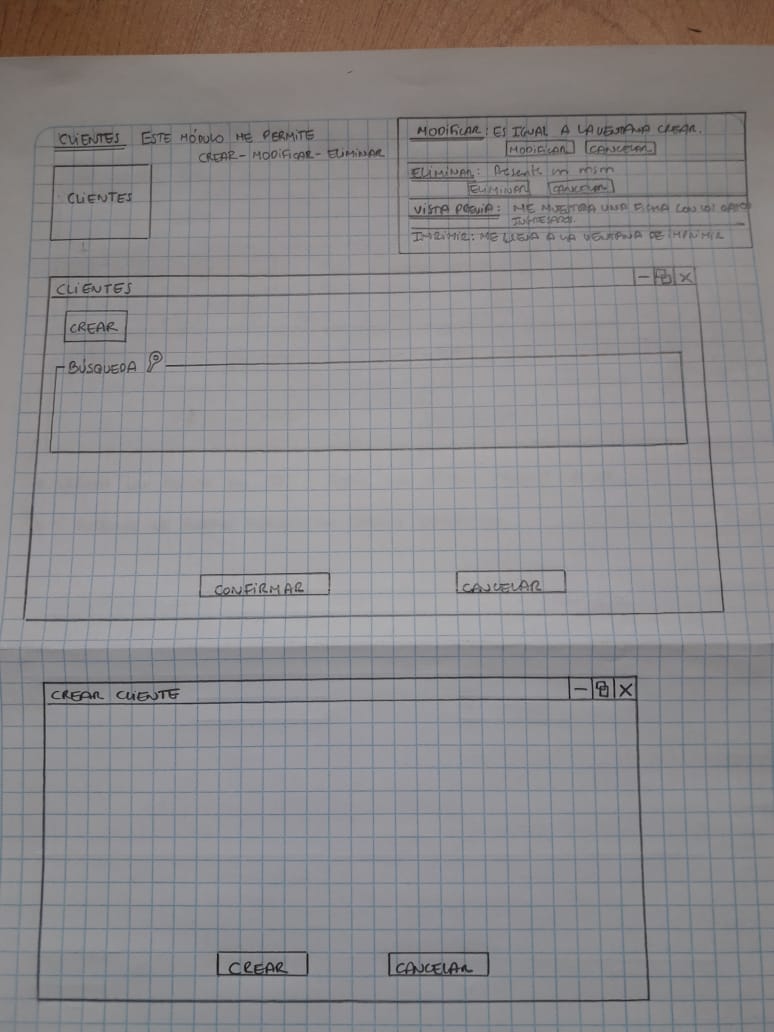 CLIENTES ESTE MÓDULO ME PERMITE
CREAR - MODIFICAR - ELIMINAR
CLIENTES
MODIFICAR: ES IGUAL A LA VENTANA CREAR.
MODIFICAR CANCELAR
ELIMINAR: Presenta un msm
ELIMINAR CANCELAR
VISTA PREVIA: ME MUESTRA UNA FICHA CON LOS DATOS
INGRESADOS.
IMPRIMIR: ME LLEVA A LA VENTANA DE IMPRIMIR
CLIENTES
CREAR
BÚSQUEDA
CONFIRMAR CANCELAR
CREAR CLIENTE
CREAR CANCELAR